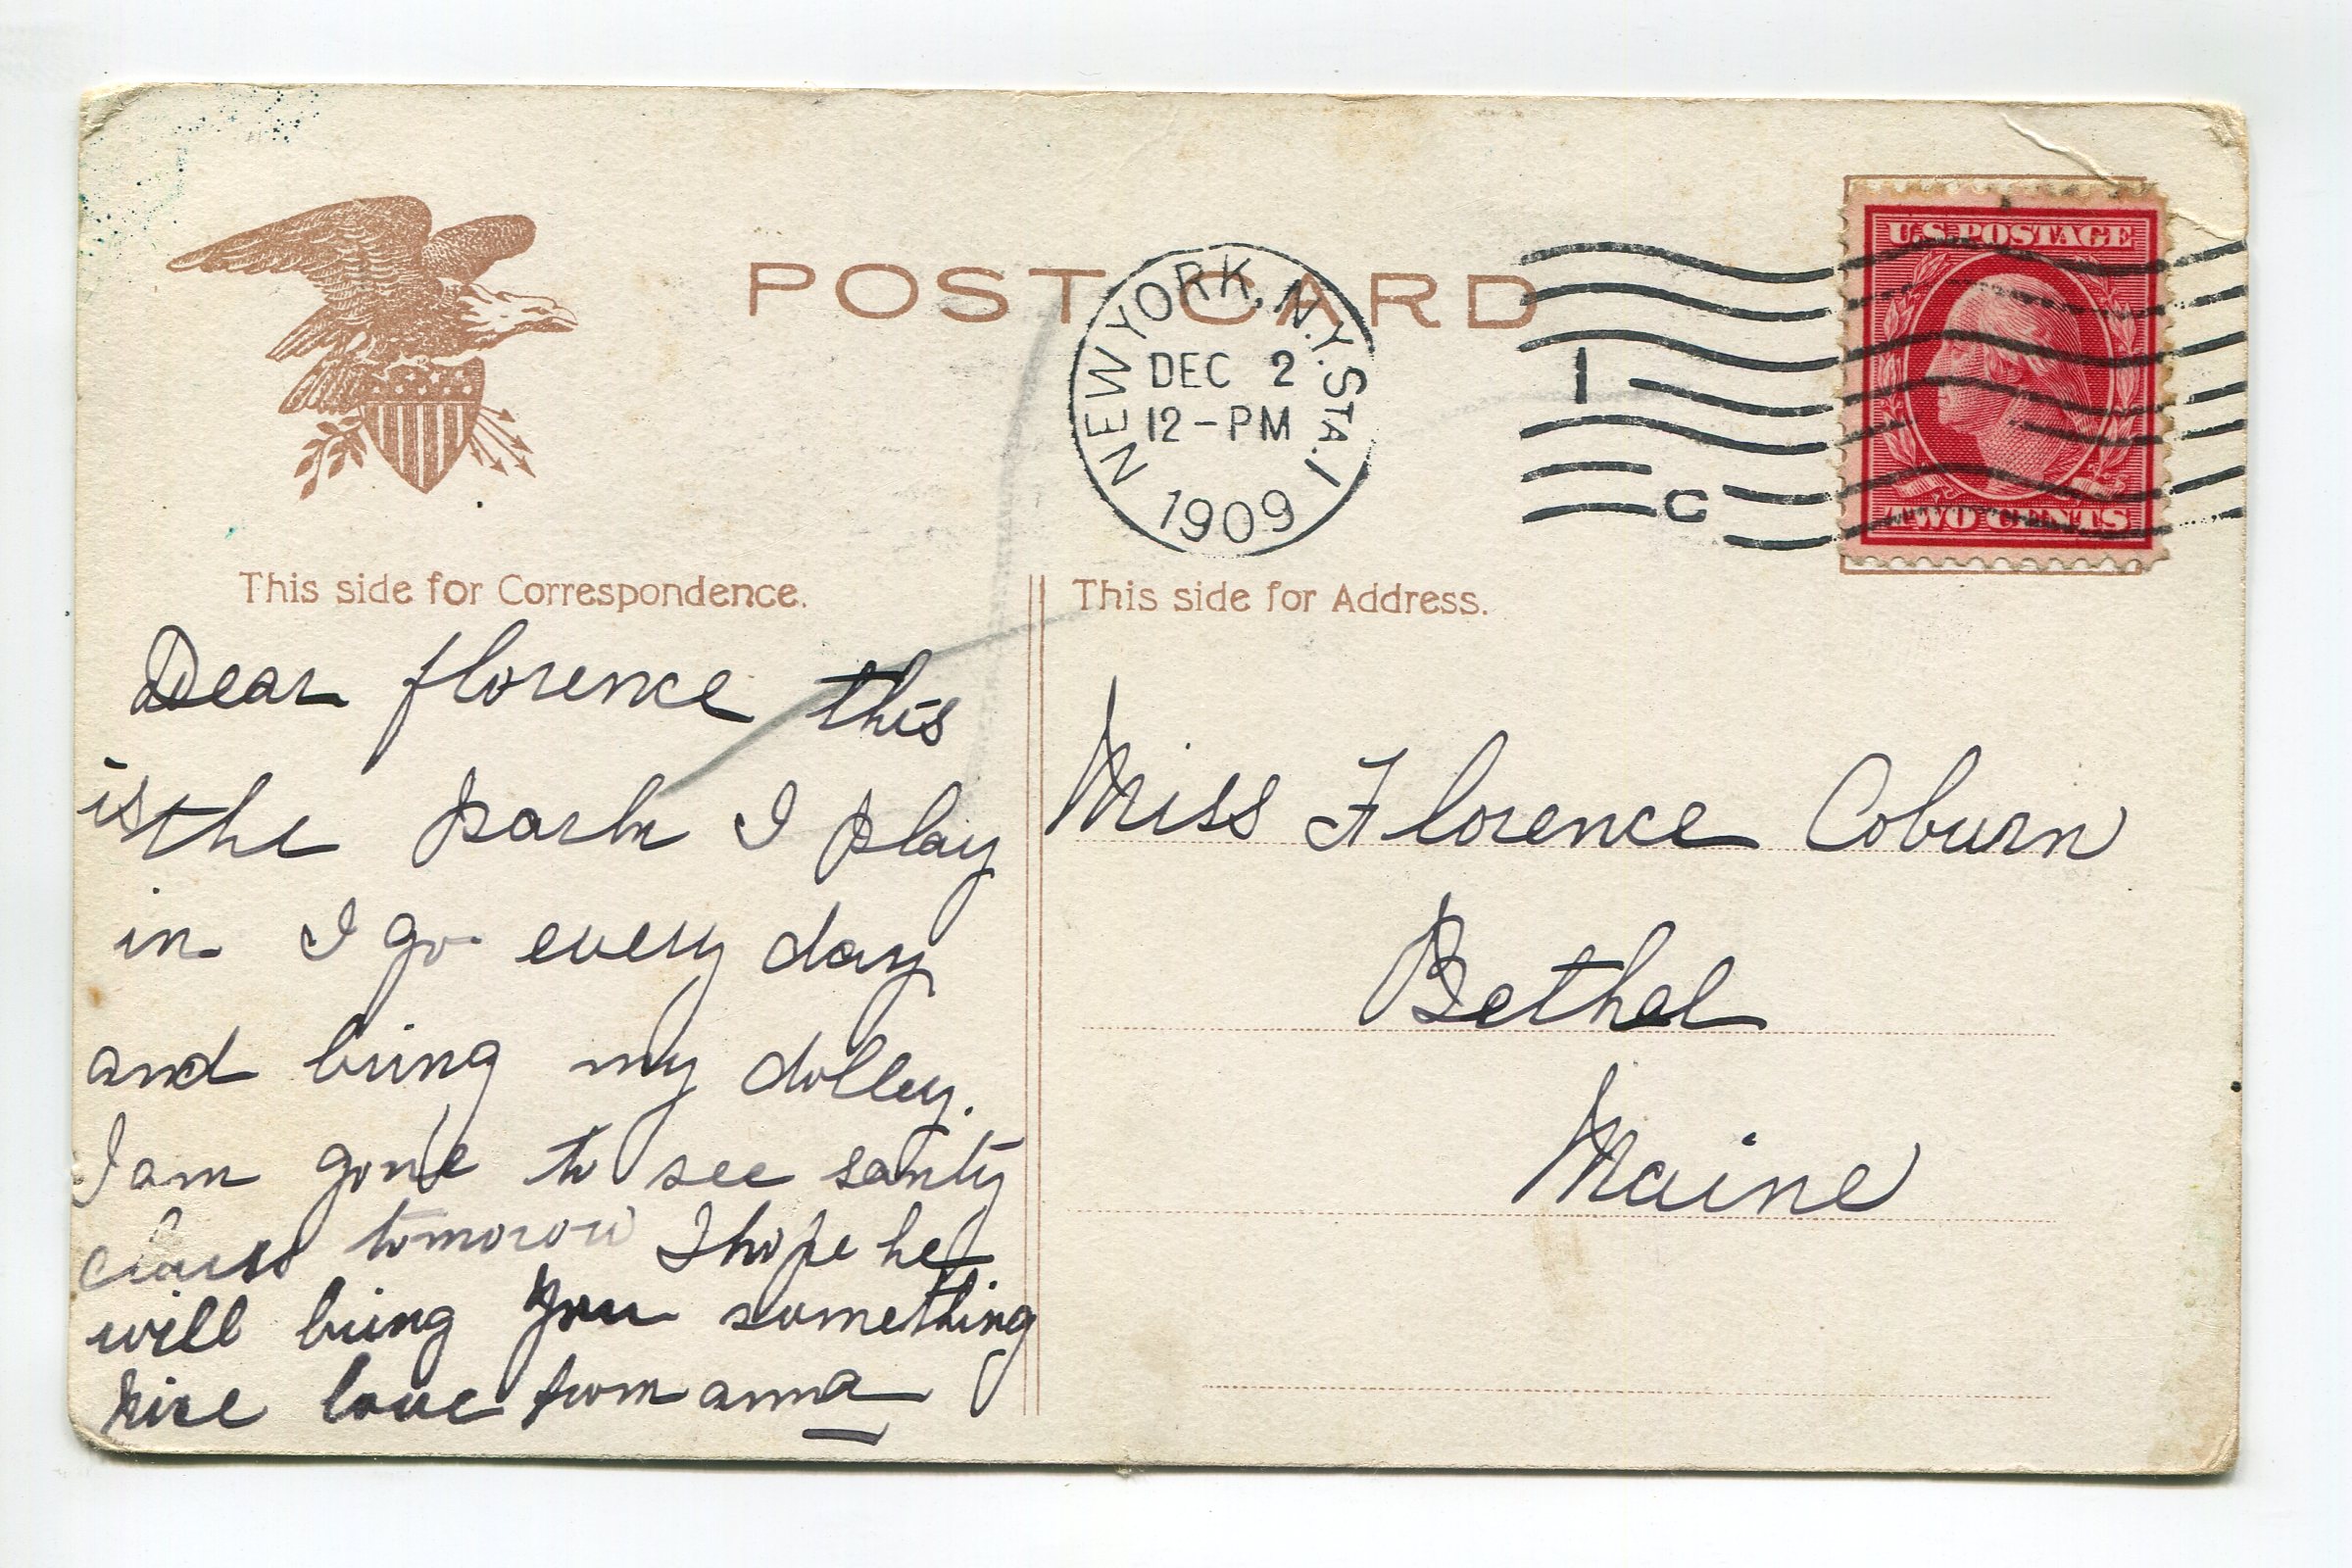 POST CARD
NEW YORK, N.Y. STA. 1
DEC 2
12-PM
1909
1
C
U.S. POSTAGE
TWO CENTS
This side for Correspondence.
Dear florence this
is the park I play
in I go every day
and bring my dolley.
I am gone to see santy
clauss tomorow I hope he
will bring you something
nice love from anna
This side for Address.
Miss Florence Coburn
Bethel
Maine